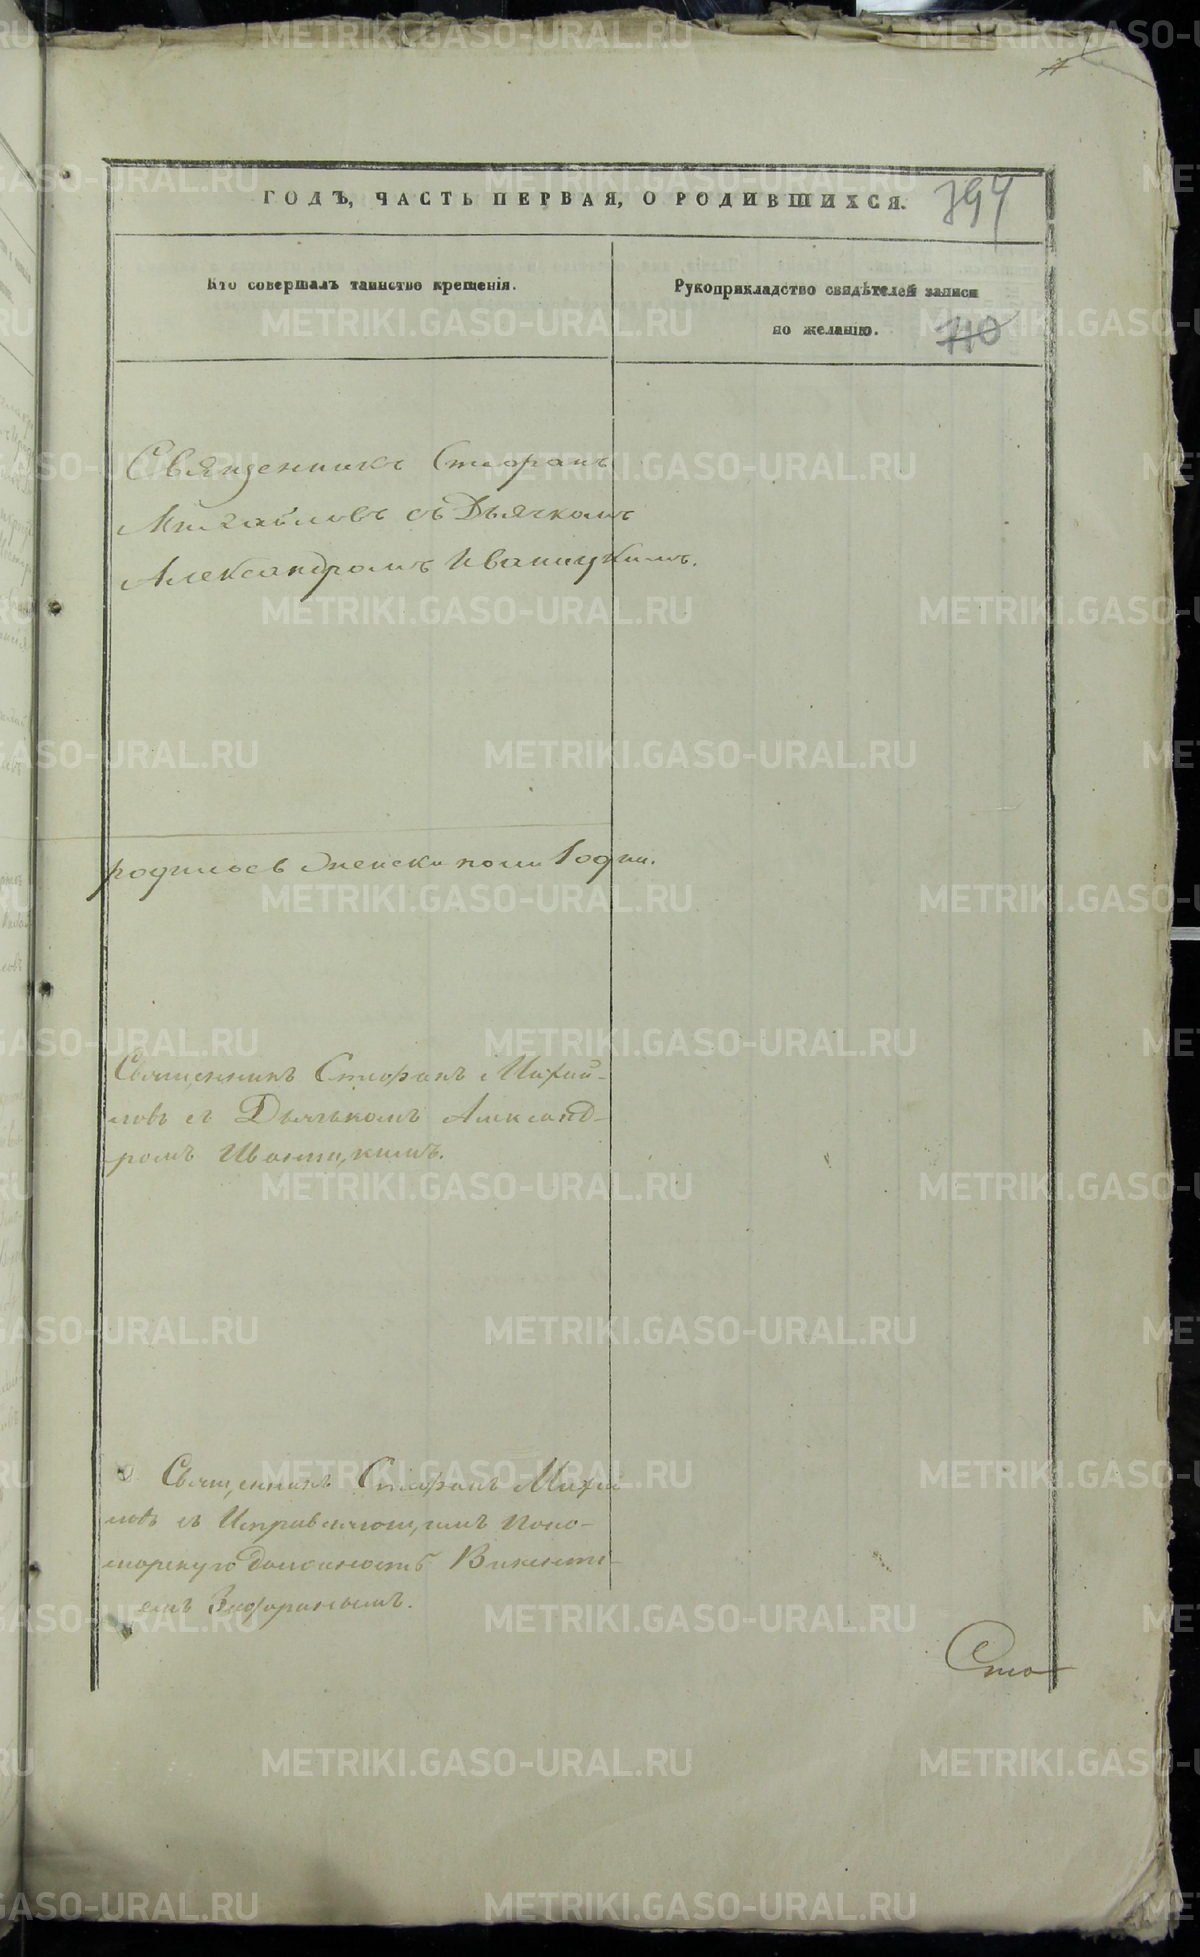 ГОДЪ, ЧАСТЬ ПЕРВАЯ, О РОДИВШИХСЯ.
394
Кто совершалъ таинство крещенія.
Рукоприкладство свидѣтелей записи
по желанію.
710
Священникъ Стефанъ
Михайловъ съ Дьячкомъ
Александромъ Иваницкимъ.
родилось женска пола 1 одни.
Священникъ Стефанъ Михай-
ловъ съ Дьячькомъ Александ-
ромъ Иваницкимъ.
Священникъ Стефанъ Михай
ловъ съ Исправляющимъ Поно-
марскую должность Викенти-
емъ Зефировымъ.
Сто
METRIKI.GASO-URAL.RU